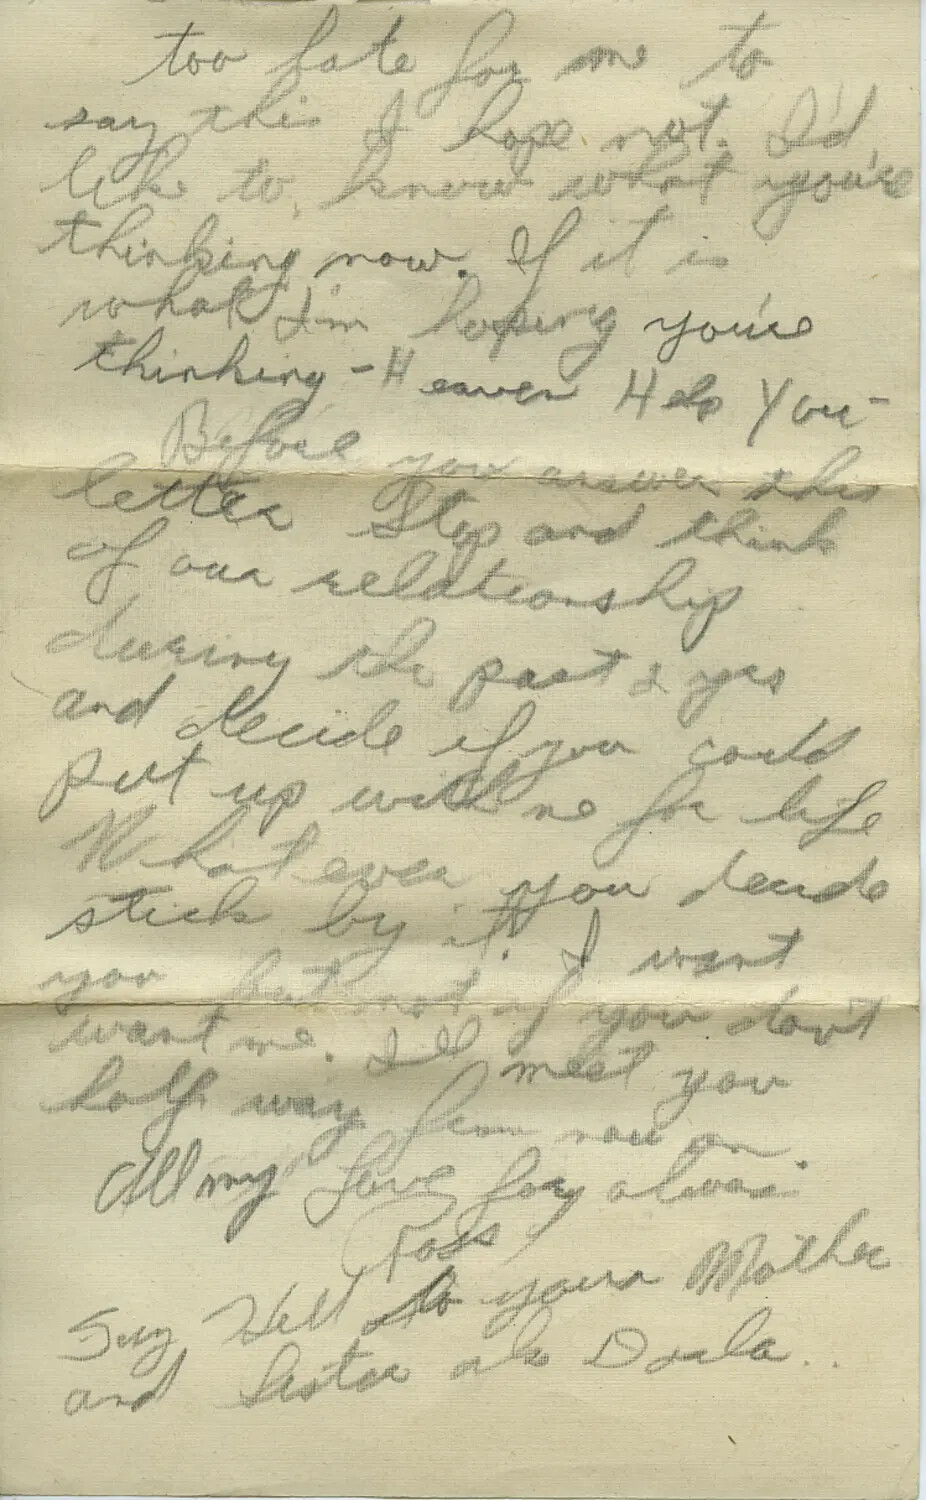 too late for me to
say this I hope not. I'd
like to know what you're
thinking now. If it is
what I'm hoping you're
thinking - Heaven Help You -
Before you answer this
letter Stop and think
of our relationship
during the past 2 yrs
and decide if you could
put up with me for life
What ever you decide
stick by it. I want
you but not if you don't
want me. I'll meet you
half way from now on.
All my Love for always
Ross
Say Hell to your Mother
and Sister als Darla..